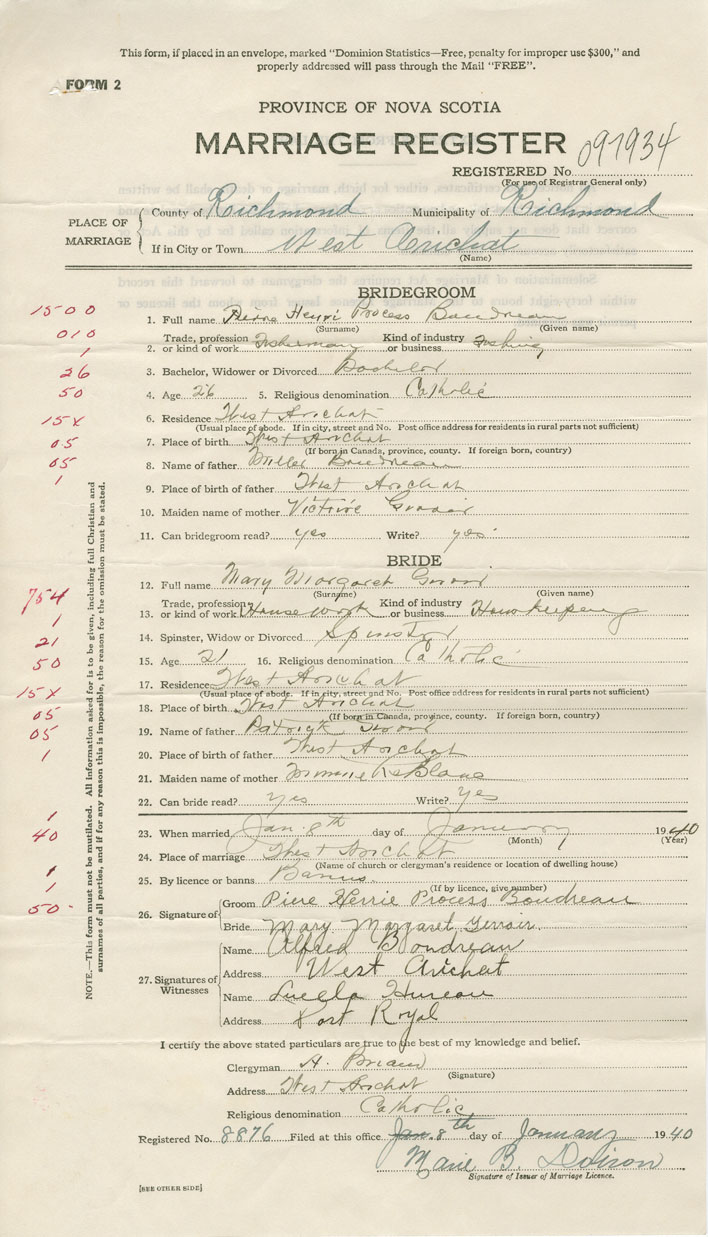 This form, if placed in an envelope, marked "Dominion Statistics—Free, penalty for improper use $300," and
properly addressed will pass through the Mail "FREE".
FORM 2
PROVINCE OF NOVA SCOTIA
MARRIAGE REGISTER
097934
REGISTERED No
(For use of Registrar General only)
PLACE OF MARRIAGE
County of Richmond Municipality of Richmond
If in City or Town West Arichat
(Name)
BRIDEGROOM
1500
1. Full name Pierre Henri Process Boudreau
(Surname) (Given name)
010
Trade, profession Kind of industry
2. or kind of work Fisherman or business Fishing
1
3. Bachelor, Widower or Divorced Bachelor
26
50
4. Age 26 5. Religious denomination Catholic
15x
6. Residence West Arichat
(Usual place of abode. If in city, street and No. Post office address for residents in rural parts not sufficient)
05
7. Place of birth West Arichat
(If born in Canada, province, county. If foreign born, country)
05
8. Name of father Boudreau
1
9. Place of birth of father West Arichat
10. Maiden name of mother Victoire
11. Can bridegroom read? yes Write? yes
BRIDE
12. Full name Mary Margaret
(Surname) (Given name)
754
Trade, profession Kind of industry
13. or kind of work House work or business Housekeeping
1
14. Spinster, Widow or Divorced Spinster
21
50
15. Age 21 16. Religious denomination Catholic
17. Residence West Arichat
15x
(Usual place of abode. If in city, street and No. Post office address for residents in rural parts not sufficient)
05
18. Place of birth West Arichat
(If born in Canada, province, county. If foreign born, country)
05
19. Name of father Patrick
1
20. Place of birth of father West Arichat
21. Maiden name of mother LeBlanc
22. Can bride read? Yes Write? Yes
1
40
23. When married Jan. 8th day of January 1940
(Month) (Year)
24. Place of marriage West Arichat
(Name of church or clergyman's residence or location of dwelling house)
1
25. By licence or banns Banns
(If by licence, give number)
1
50
26. Signature of
Groom Piere Herrie Process Boudreau
Bride Mary Margaret Gerroir
27. Signatures of Witnesses
Name Alfred Boudreau
Address West Arichat
Name Luella
Address Port Royal
NOTE.—This form must not be mutilated. All information asked for is to be given, including full Christian and
surnames of all parties, and if for any reason this is impossible, the reason for the omission must be stated.
I certify the above stated particulars are true to the best of my knowledge and belief.
Clergyman A. Briand
(Signature)
Address West Arichat
Religious denomination Catholic
Registered No. 8876 Filed at this office Jan. 8th day of January 1940
Marie B. Doiron
Signature of Issuer of Marriage Licence.
[SEE OTHER SIDE]